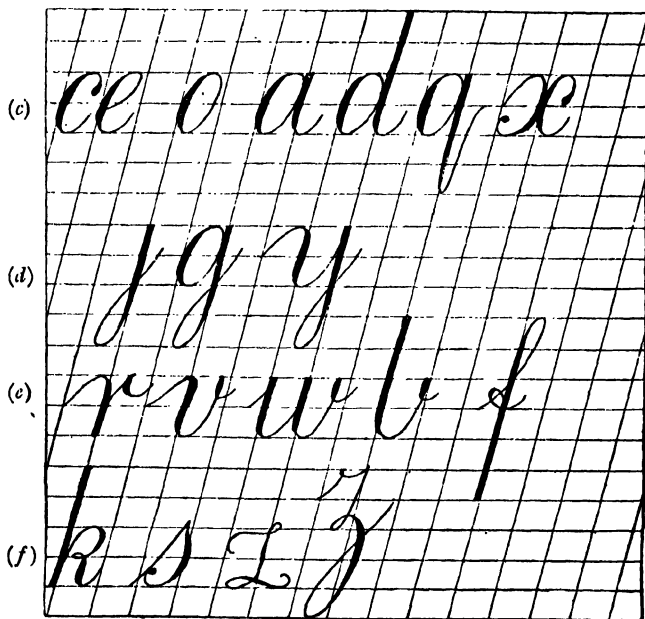 (c) c e o a d q x
(d) j g y
(e) r v w b f
(f) k s z z